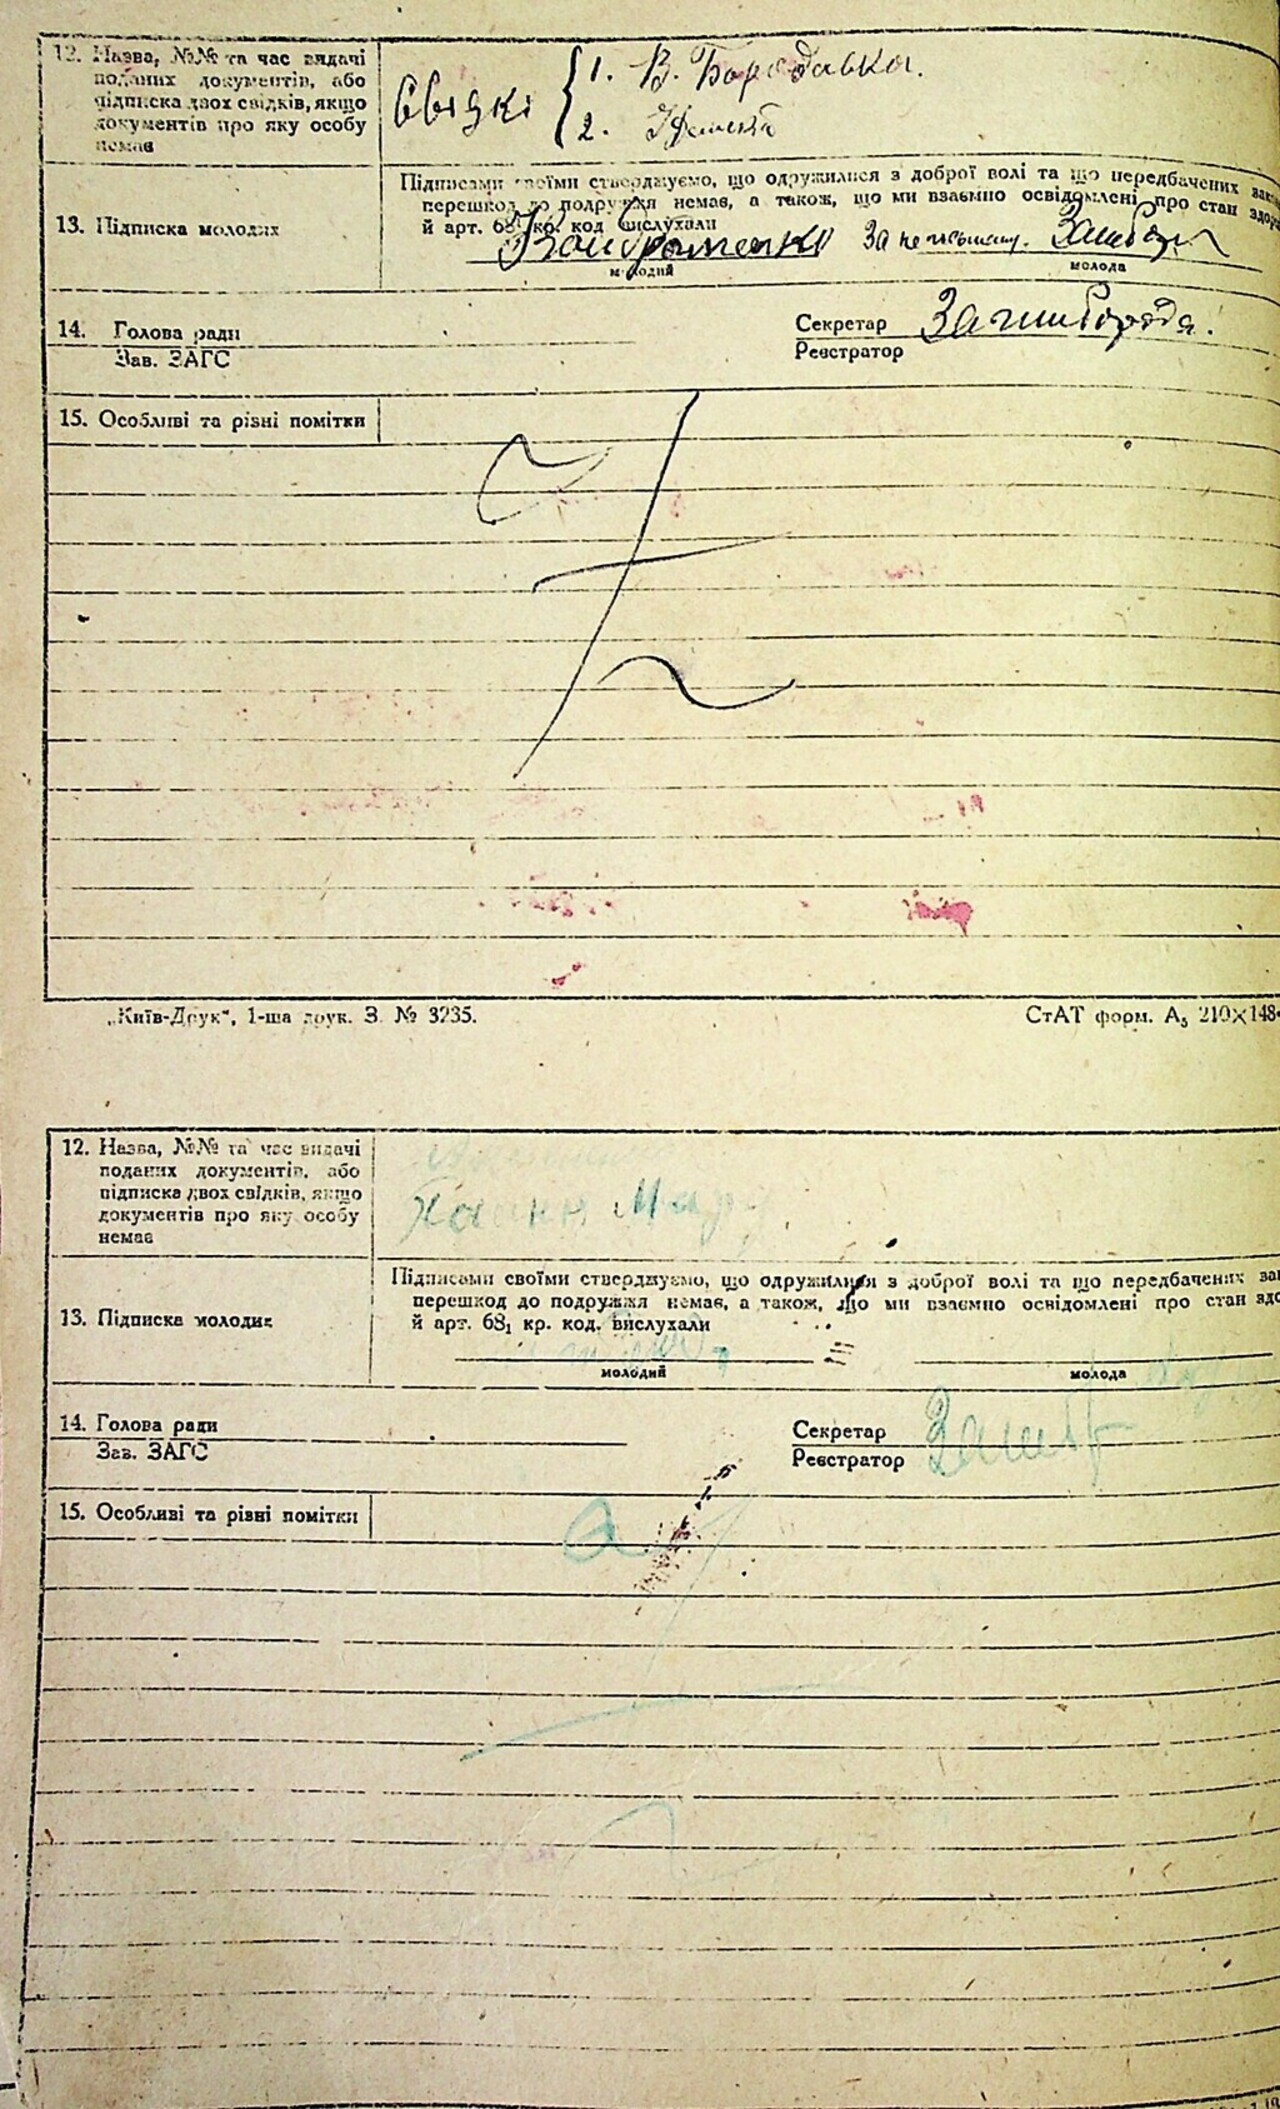 12. Назва, №№ та час видачі
поданих документів, або
підписка двох свідків, якщо
документів про яку особу
немає
Свідкі
1. В. Бородавка.
2.
Підписами своїми стверджуємо, що одружилися з доброї волі та що передбачених
перешкод до подружжя немає, а також, що ми взаємно освідомлені про стан
й арт. 68₁ кр. код вислухали
13. Підписка молодих
Кондратенко За неписьмену.
молодий молода
14. Голова ради
Зав. ЗАГС
Секретар
Реєстратор
15. Особливі та різні помітки
„Київ-Друк“, 1-ша друк. З. № 3235.
СтАТ форм. А₅ 210×148
12. Назва, №№ та час видачі
поданих документів, або
підписка двох свідків, якщо
документів про яку особу
немає
Підписами своїми стверджуємо, що одружилися з доброї волі та що передбачених
перешкод до подружжя немає, а також, що ми взаємно освідомлені про стан
й арт. 68₁ кр. код. вислухали
13. Підписка молодих
молодий молода
14. Голова ради
Зав. ЗАГС
Секретар
Реєстратор
15. Особливі та різні помітки